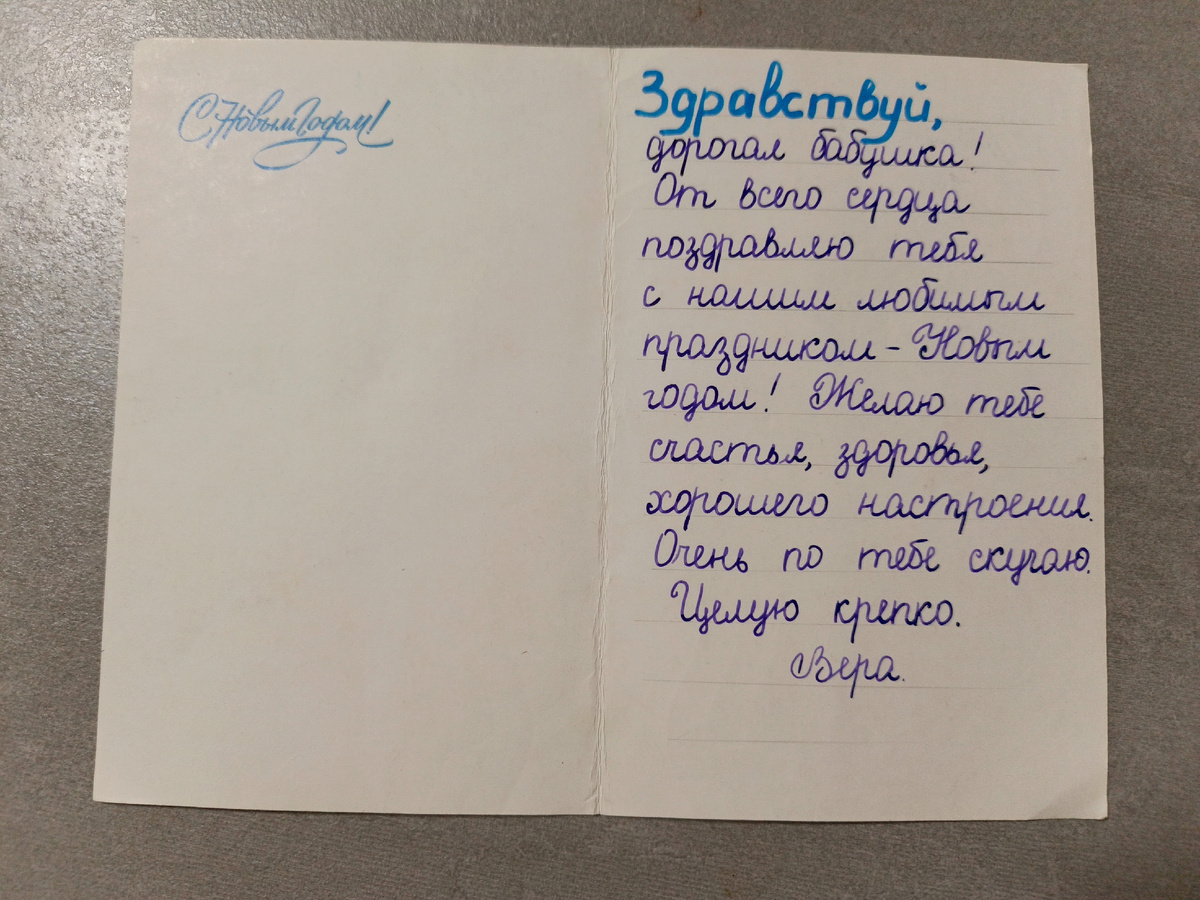 С Новым Годом!
Здравствуй,
дорогая бабушка!
От всего сердца
поздравляю тебя
с нашим любимым
праздником - Новым
годом! Желаю тебе
счастья, здоровья,
хорошего настроения.
Очень по тебе скучаю.
Целую крепко.
Вера.